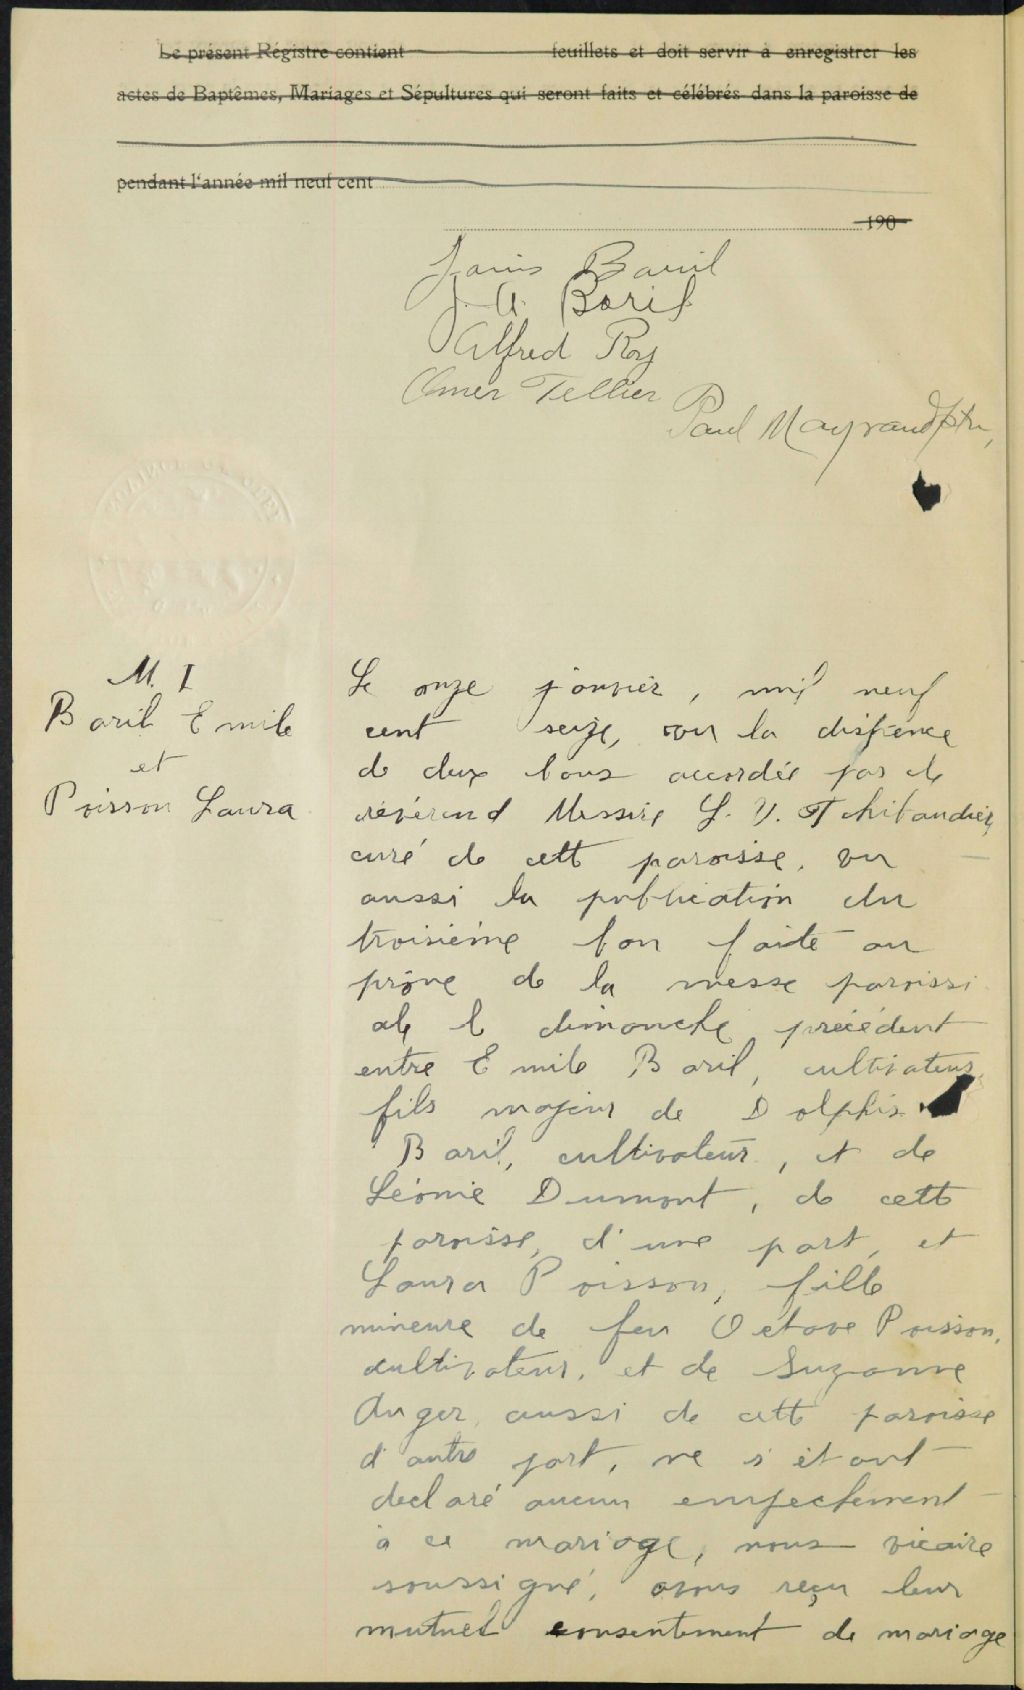 Le présent Régistre contient feuillets et doit servir à enregistrer les
actes de Baptêmes, Mariages et Sépultures qui seront faits et célébrés dans la paroisse de
pendant l'année mil neuf cent
190
Baril
J. A. Baril
Alfred Roy
Omer Tellier
Paul Mayrand ptre,
M. I
Baril Emile
et
Poisson Laura
Le onze janvier, mil neuf
cent seize, vu la dispence
de deux bans accordée par le
révérend Messire L. V.
curé de cette paroisse, vu
aussi la publication du
troisième ban faite au
prône de la messe paroissi
ale le dimanche précédent
entre Emile Baril, cultivateur,
fils majeur de Dolphis
Baril, cultivateur, et de
Léonie Dumont, de cette
paroisse, d'une part, et
Laura Poisson, fille
mineure de feu Octave Poisson,
cultivateur, et de Suzanne
Auger, aussi de cette paroisse
d'autre part, ne s'étant
declaré aucun empechement
à ce mariage, nous vicaire
soussigné, avons reçu leur
mutuel consentement de mariage